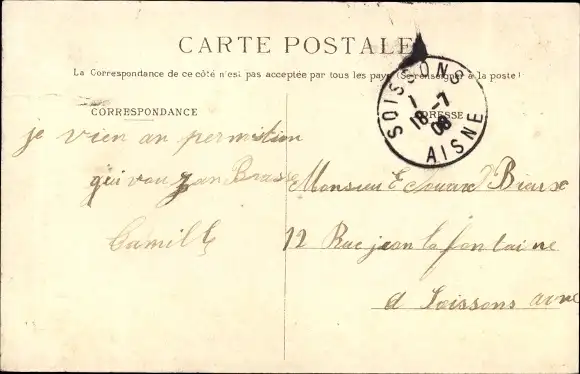 CARTE POSTALE
La Correspondance de ce côté n'est pas acceptée par tous les pays (Se renseigner à la poste)
CORRESPONDANCE
ADRESSE
SOISSONS
1
18-7
08
AISNE
je vien an permition
qui vou
Camill
Monsieur E
12 Rue jean la fontaine
a Soissons